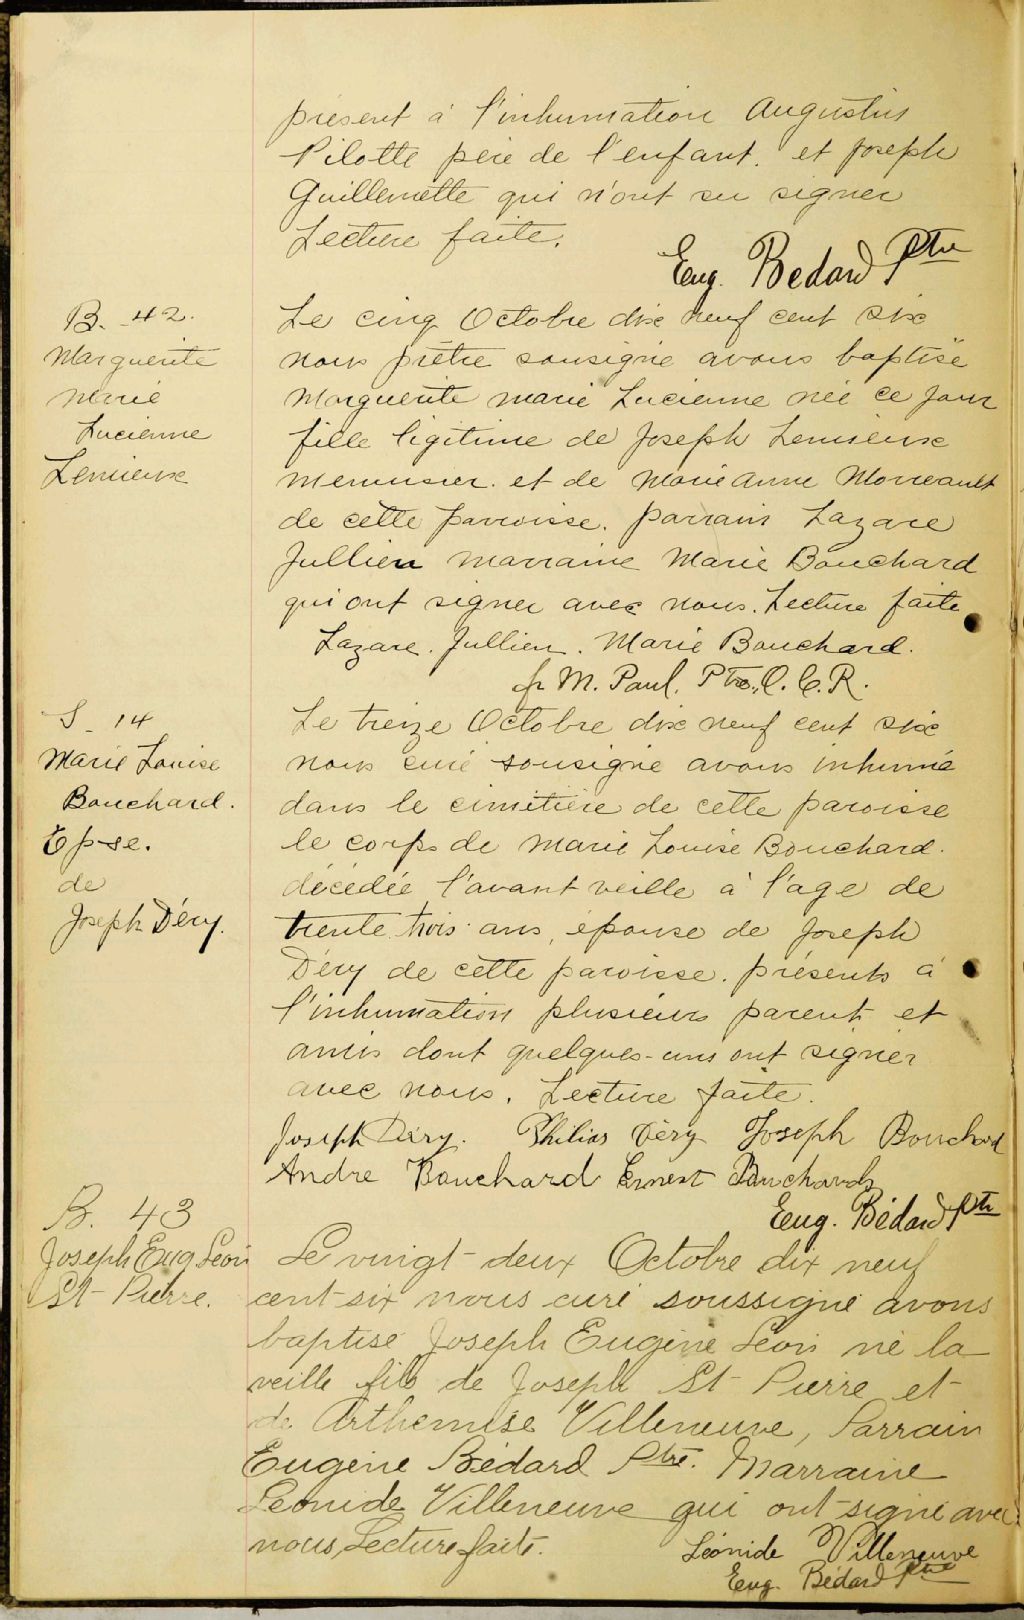 présent à l'inhumation Augustin
Pilotte père de l'enfant. et Joseph
Guillemette qui n'ont su signer
Lecture faite.
Eug. Bedard Ptre
B. 42.
Marguerite
Marie
Lucienne
Lemieux
Le cinq Octobre dix neuf cent six
nous prêtre sousigné avons baptisé
Marguerite Marie Lucienne née ce jour
fille légitime de Joseph Lemieux
menusier. et de Marie Anne Morreault
de cette parroisse. parrain Lazare
Jullien marraine Marie Bouchard
qui ont signer avec nous. Lecture faite
Lazare. Jullien. Marie Bouchard.
fr M. Paul. Ptre, O. C. R.
S 14
Marie Louise
Bouchard.
Epse.
de
Joseph Déry.
Le treize Octobre dix neuf cent six
nous curé sousigné avons inhumé
dans le cimitière de cette paroisse
le corps de Marie Louise Bouchard.
décédée l'avant veille à l'age de
trente trois ans, épouse de Joseph
Déry de cette paroisse. présents à
l'inhumation plusieurs parents et
amis dont quelques-uns ont signer
avec nous. Lecture faite.
Joseph Déry. Philias Déry Joseph Bouchard
Andre Bouchard Ernest Bouchard
Eug. Bédard Ptr
B. 43
Joseph Eug. Léon
St-Pierre.
Le vingt-deux Octobre dix neuf
cent-six nous curé soussigné avons
baptisé Joseph Eugène Léon né la
veille fils de Joseph St-Pierre et
de Arthemise Villeneuve, Parrain
Eugène Bédard Ptre. Marraine
Léonide Villeneuve qui ont signé avec
nous, Lecture faite.
Léonide Villeneuve
Eug. Bédard Ptre